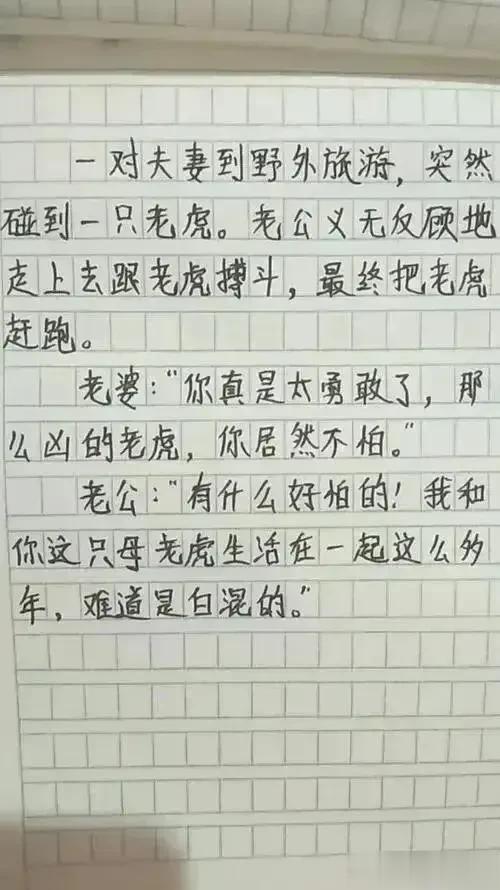 一对夫妻到野外旅游，突然
碰到一只老虎。老公义无反顾地
走上去跟老虎搏斗，最终把老虎
赶跑。
老婆：“你真是太勇敢了，那
么凶的老虎，你居然不怕。”
老公：“有什么好怕的！我和
你这只母老虎生活在一起这么多
年，难道是白混的。”